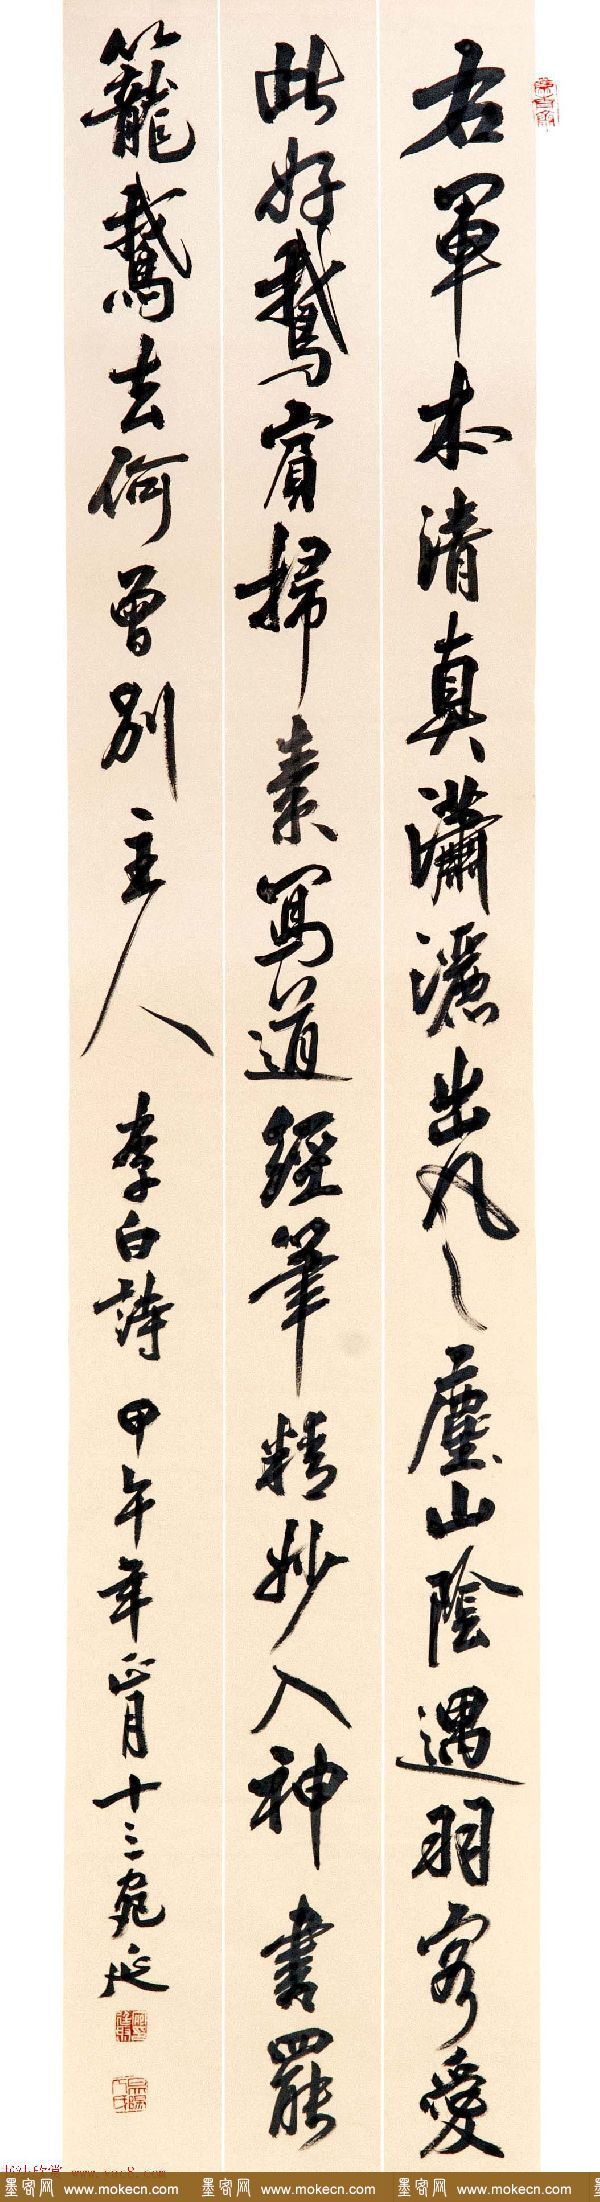 右軍本清真瀟灑出風塵山陰遇羽客愛
此好鵝賓掃素寫道經筆精妙入神書罷
籠鵝去何曾別主人 李白詩 甲午年正月十三宛延
墨客网 www.mokecn.com 墨客网 www.mokecn.com 墨客网 www.mokecn.com